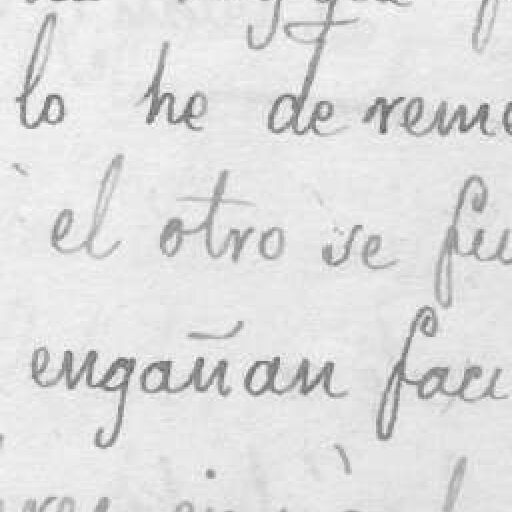 lo he de reme
el otro se fu
engañan faci